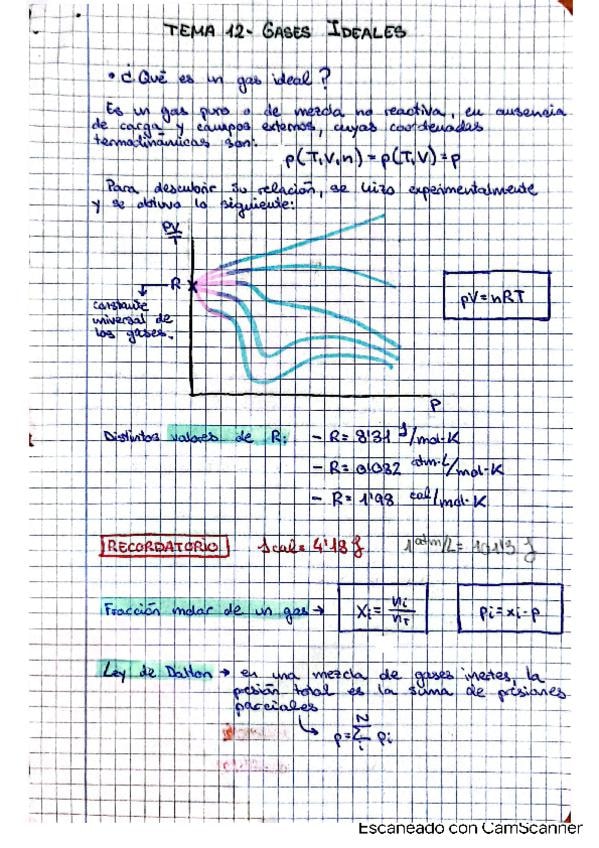 TEMA 12- GASES IDEALES
• ¿Qué es un gas ideal?
Es un gas puro o de mezcla no reactiva, en ausencia
de carga y campos externos, cuyas coordenadas
termodinámicas son:
p(T,V,n) = p(T,V) = p
Para descubrir su relación, se hizo experimentalmente
y se obtuvo lo siguiente:
PV/T
R
constante
universal de
los gases.
pV = nRT
P
Distintos valores de R:
- R = 8'31 J/mol·K
- R = 0'082 atm·L/mol·K
- R = 1'98 cal/mol·K
RECORDATORIO 1cal = 4'18 J 1 atm/L = 101'3 J
Fracción molar de un gas → Xi = ni/nT pi = xi · p
Ley de Dalton → en una mezcla de gases inertes, la
presión total es la suma de presiones
parciales
p = Σ pi
N
i
Escaneado con CamScanner